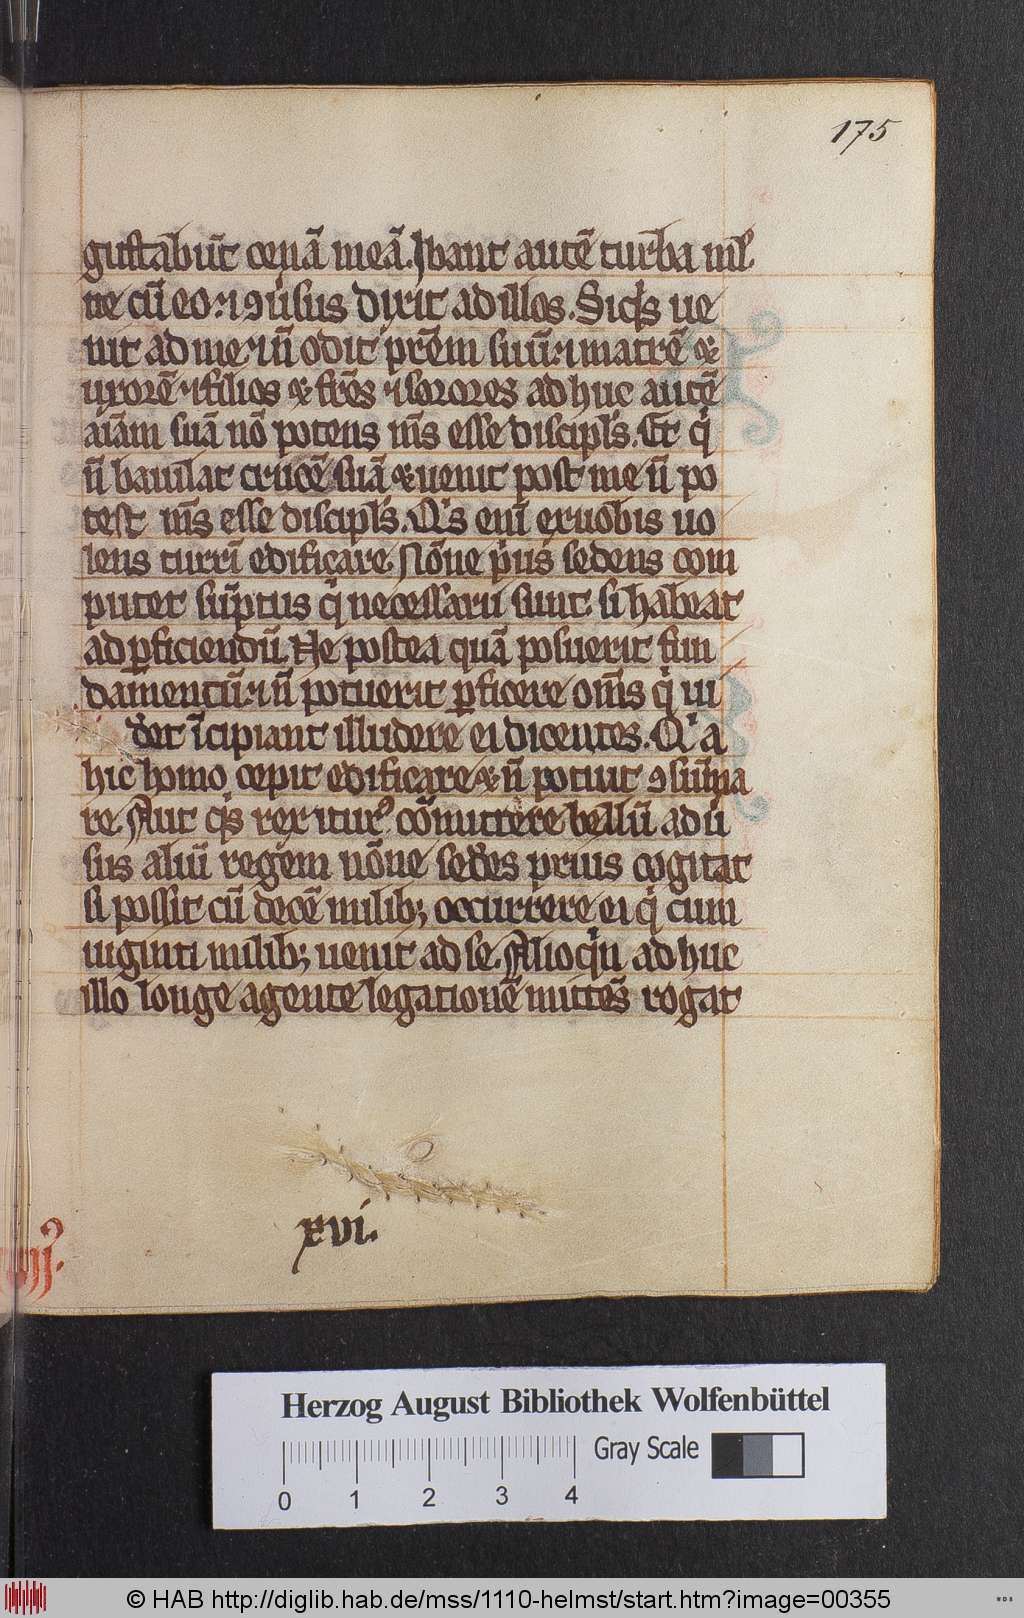 175
gustabūt cenā meā. Ibant autē turba ml̕
ne cū eo. ⁊ ꝯuͥsus dixit ad illos. Siqͥs ue
nit ad me ⁊ n̄ odit pr̄em suū ⁊ matrē &
uxorē ⁊ filios & fr̄es ⁊ sorores adhuc autē
aīam suā nō potens m̄s esse discipl̕s. Et qͥ
n̄ baiulat crucē suā & uenit post me n̄ po
test m̄s esse discipl̕s. Qͥs enī ex uobis uo
lens turrī edificare. Nōne pͥus sedens com
putet sūptus qͥ necessarii sunt si habeat
ad ꝑficiendū. Ne postea quā posuerit fun
damentū ⁊ n̄ potuerit ꝑficere om̄s qͥ ui
det īcipiant illudere ei dicentes. Qͥa
hic homo cepit edificare & n̄ potuit ꝯsūma
re. Aut qͥs rex iturꝰ cōmittere bellū adu
sus aliū regem nōne sedēs prius cogitat
si possit cū decē milib; occurrere ei qͥ cum
uiginti milib; uenit ad se. Alioqͥn adhuc
illo longe agente legationē mittēs rogat
xvi.
Herzog August Bibliothek Wolfenbüttel
Gray Scale
0 1 2 3 4
© HAB http://diglib.hab.de/mss/1110-helmst/start.htm?image=00355